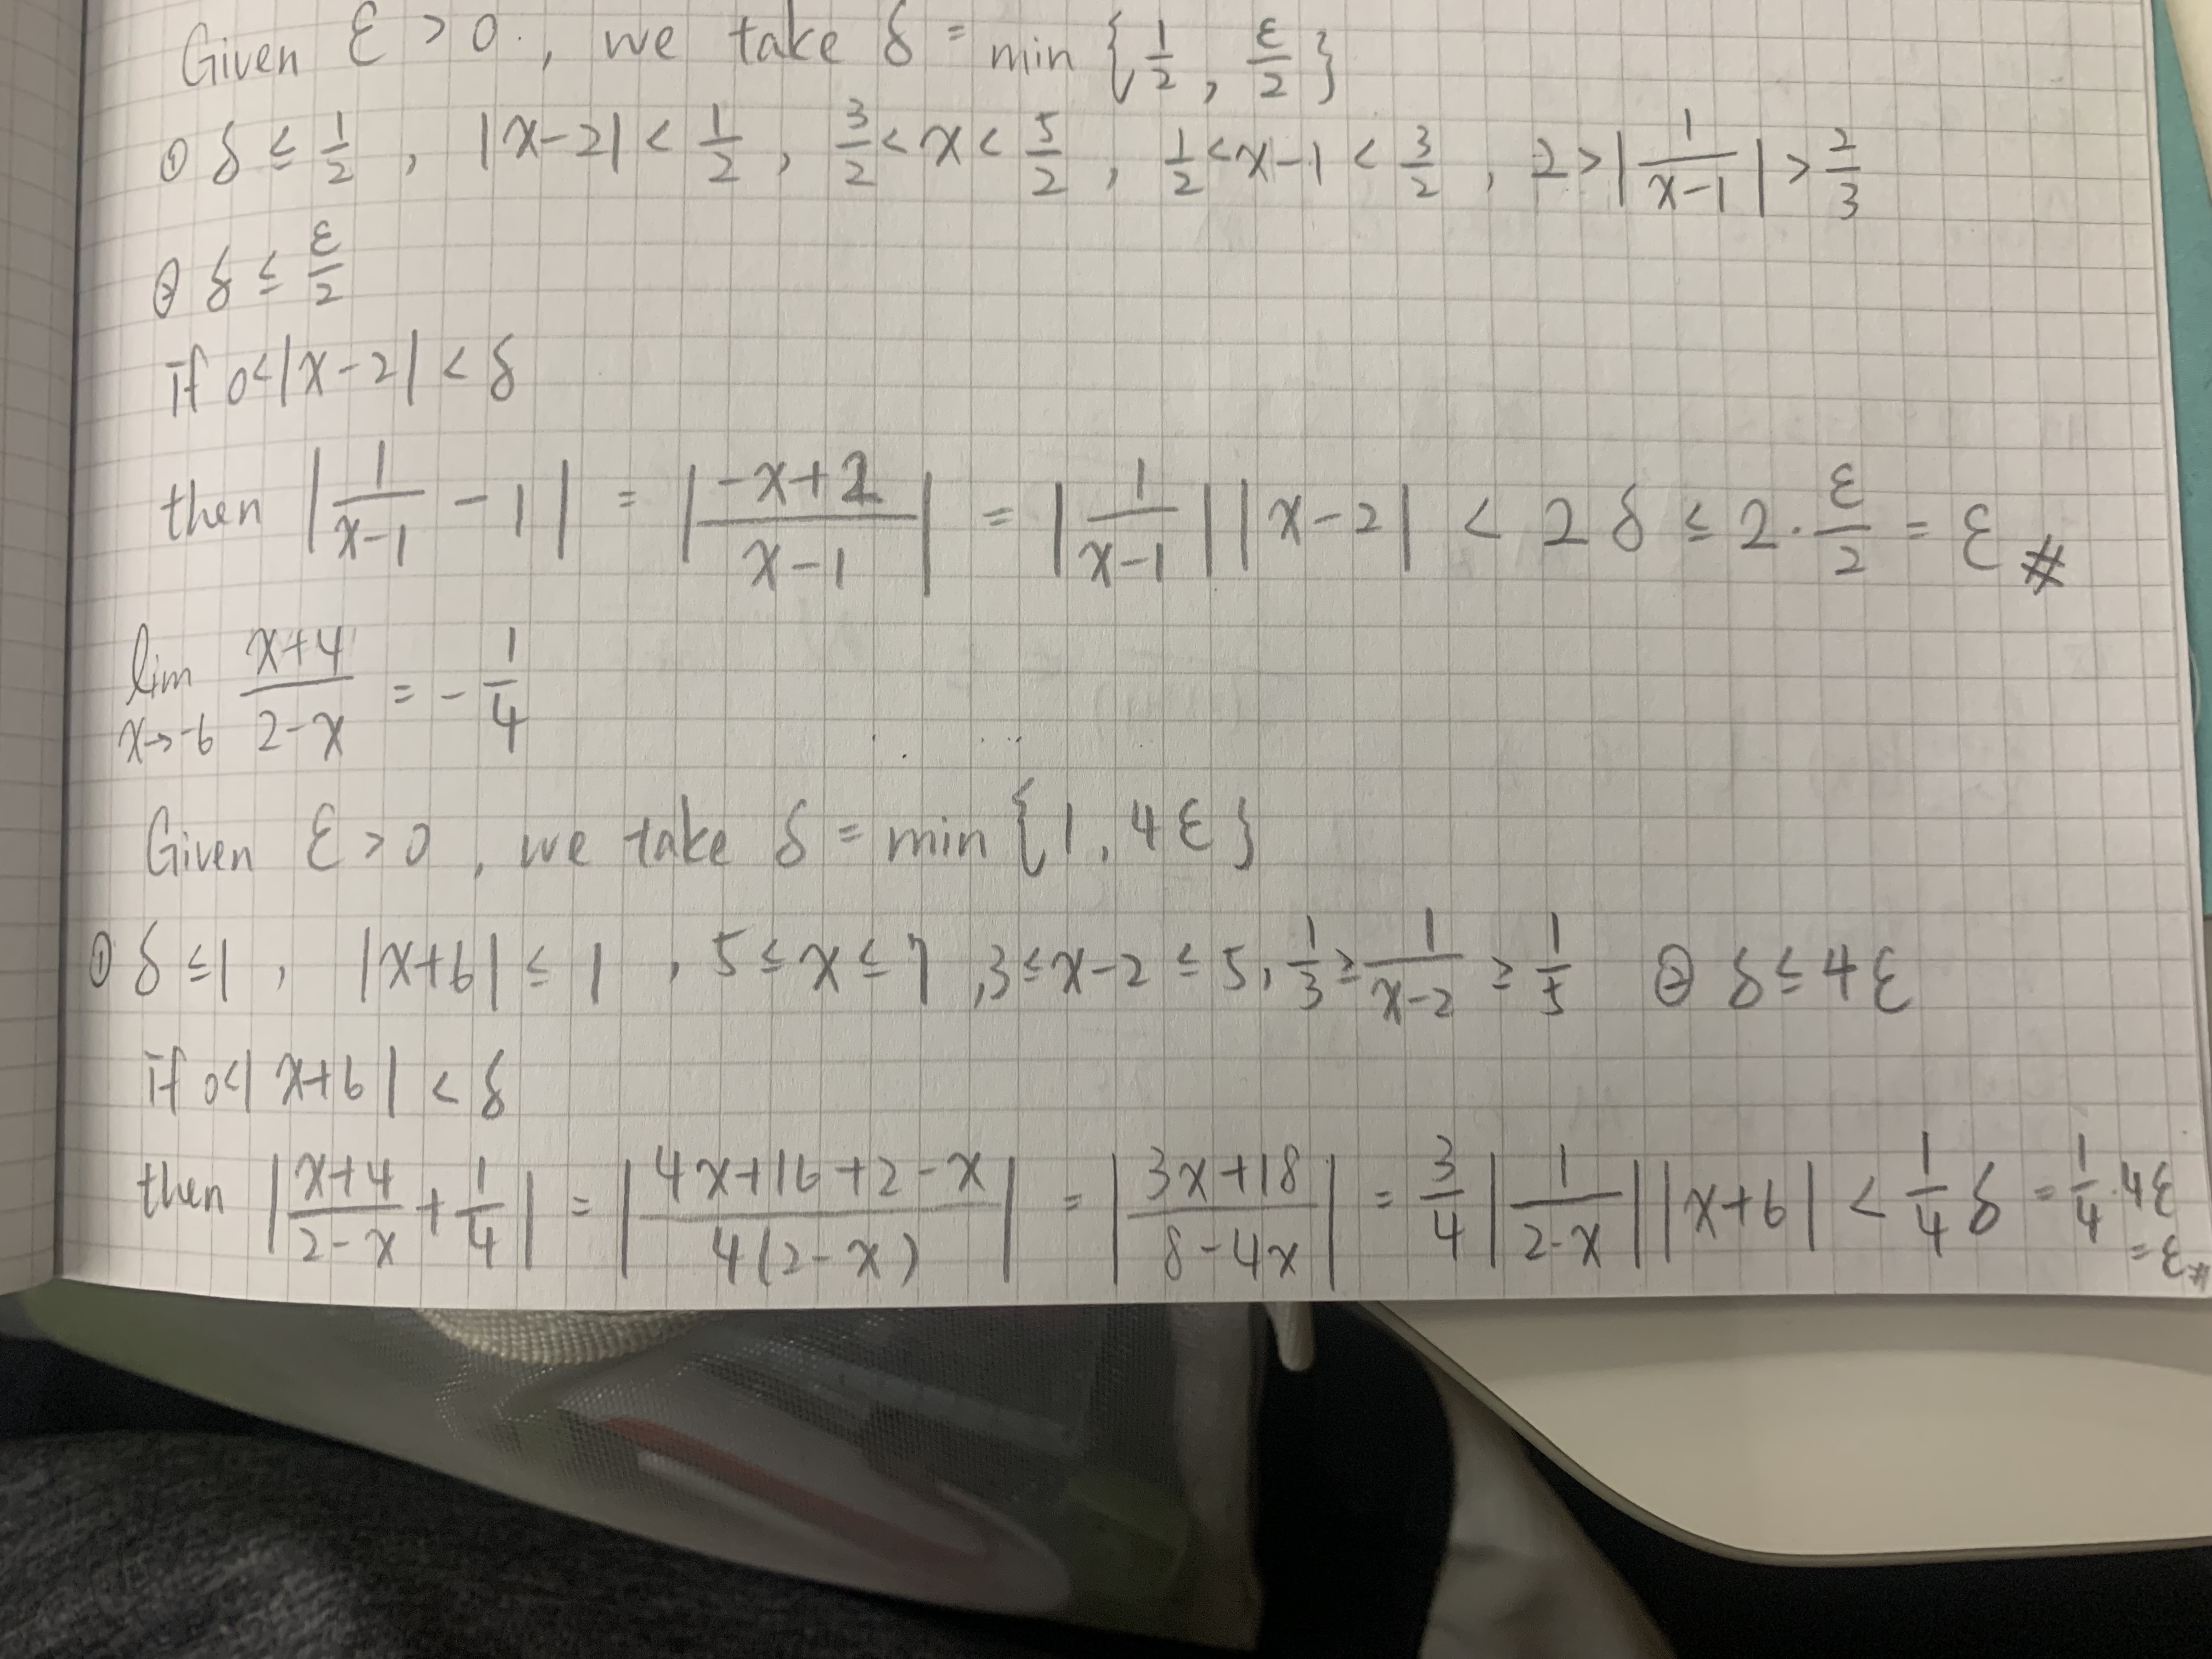 Given ε > 0, we take δ = min {1/2, ε/2}
① δ ≤ 1/2, |x-2| < 1/2, 3/2 < x < 5/2, 1/2 < x-1 < 3/2, 2 > |1/(x-1)| > 2/3
② δ ≤ ε/2
If 0<|x-2|<δ
then |1/(x-1) - 1| = |(-x+2)/(x-1)| = |1/(x-1)||x-2| < 2δ ≤ 2·ε/2 = ε #
lim x→-6 (x+4)/(2-x) = -1/4
Given ε > 0, we take δ = min {1, 4ε}
① δ ≤ 1, |x+6| ≤ 1, 5 ≤ x ≤ 7, 3 ≤ x-2 ≤ 5, 1/3 ≥ 1/(x-2) ≥ 1/5 ② δ ≤ 4ε
If 0<|x+6|<δ
then |(x+4)/(2-x) + 1/4| = |(4x+16+2-x)/(4(2-x))| = |(3x+18)/(8-4x)| = 3/4 |1/(2-x)||x+6| < 1/4 δ = 1/4·4ε
= ε #